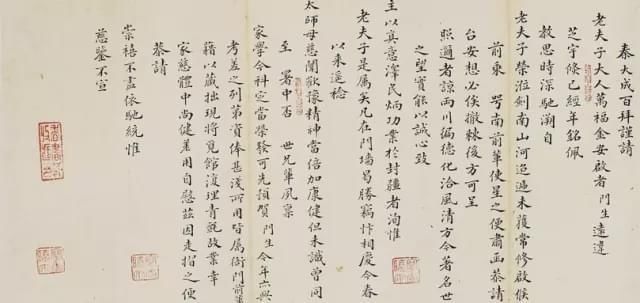 秦大成百拜謹請
老夫子大人萬福金安啟者門生遠違
芝宇倏已經年銘佩
教思時深馳溯自
老夫子榮涖劍南山河迢遞未獲常修啟候
前東咢南前輩使星之便肅函恭請
台安想必俟撤棘後方可呈
照邇者諒兩川徧德化洽風清方今著名世
之望實能以誠心致
主以真意澤民炳功業於封疆者洵惟
老夫子是屬矣凡在門墻曷勝竊忭相慶今春
以來遥稔
太師母慈闈歡豫精神當倍加康健但未識曾同
至署中否世兄輩夙稟
家學今科定當榮發可先預賀門生今年六與
考差之列第資俸甚淺所用皆屬衙門前輩
藉以藏拙現將覓館復理青氈故業幸
家慈體中尚健差用自慰茲因走摺之便
恭請
崇禧不盡依馳統惟
慈鑒不宣